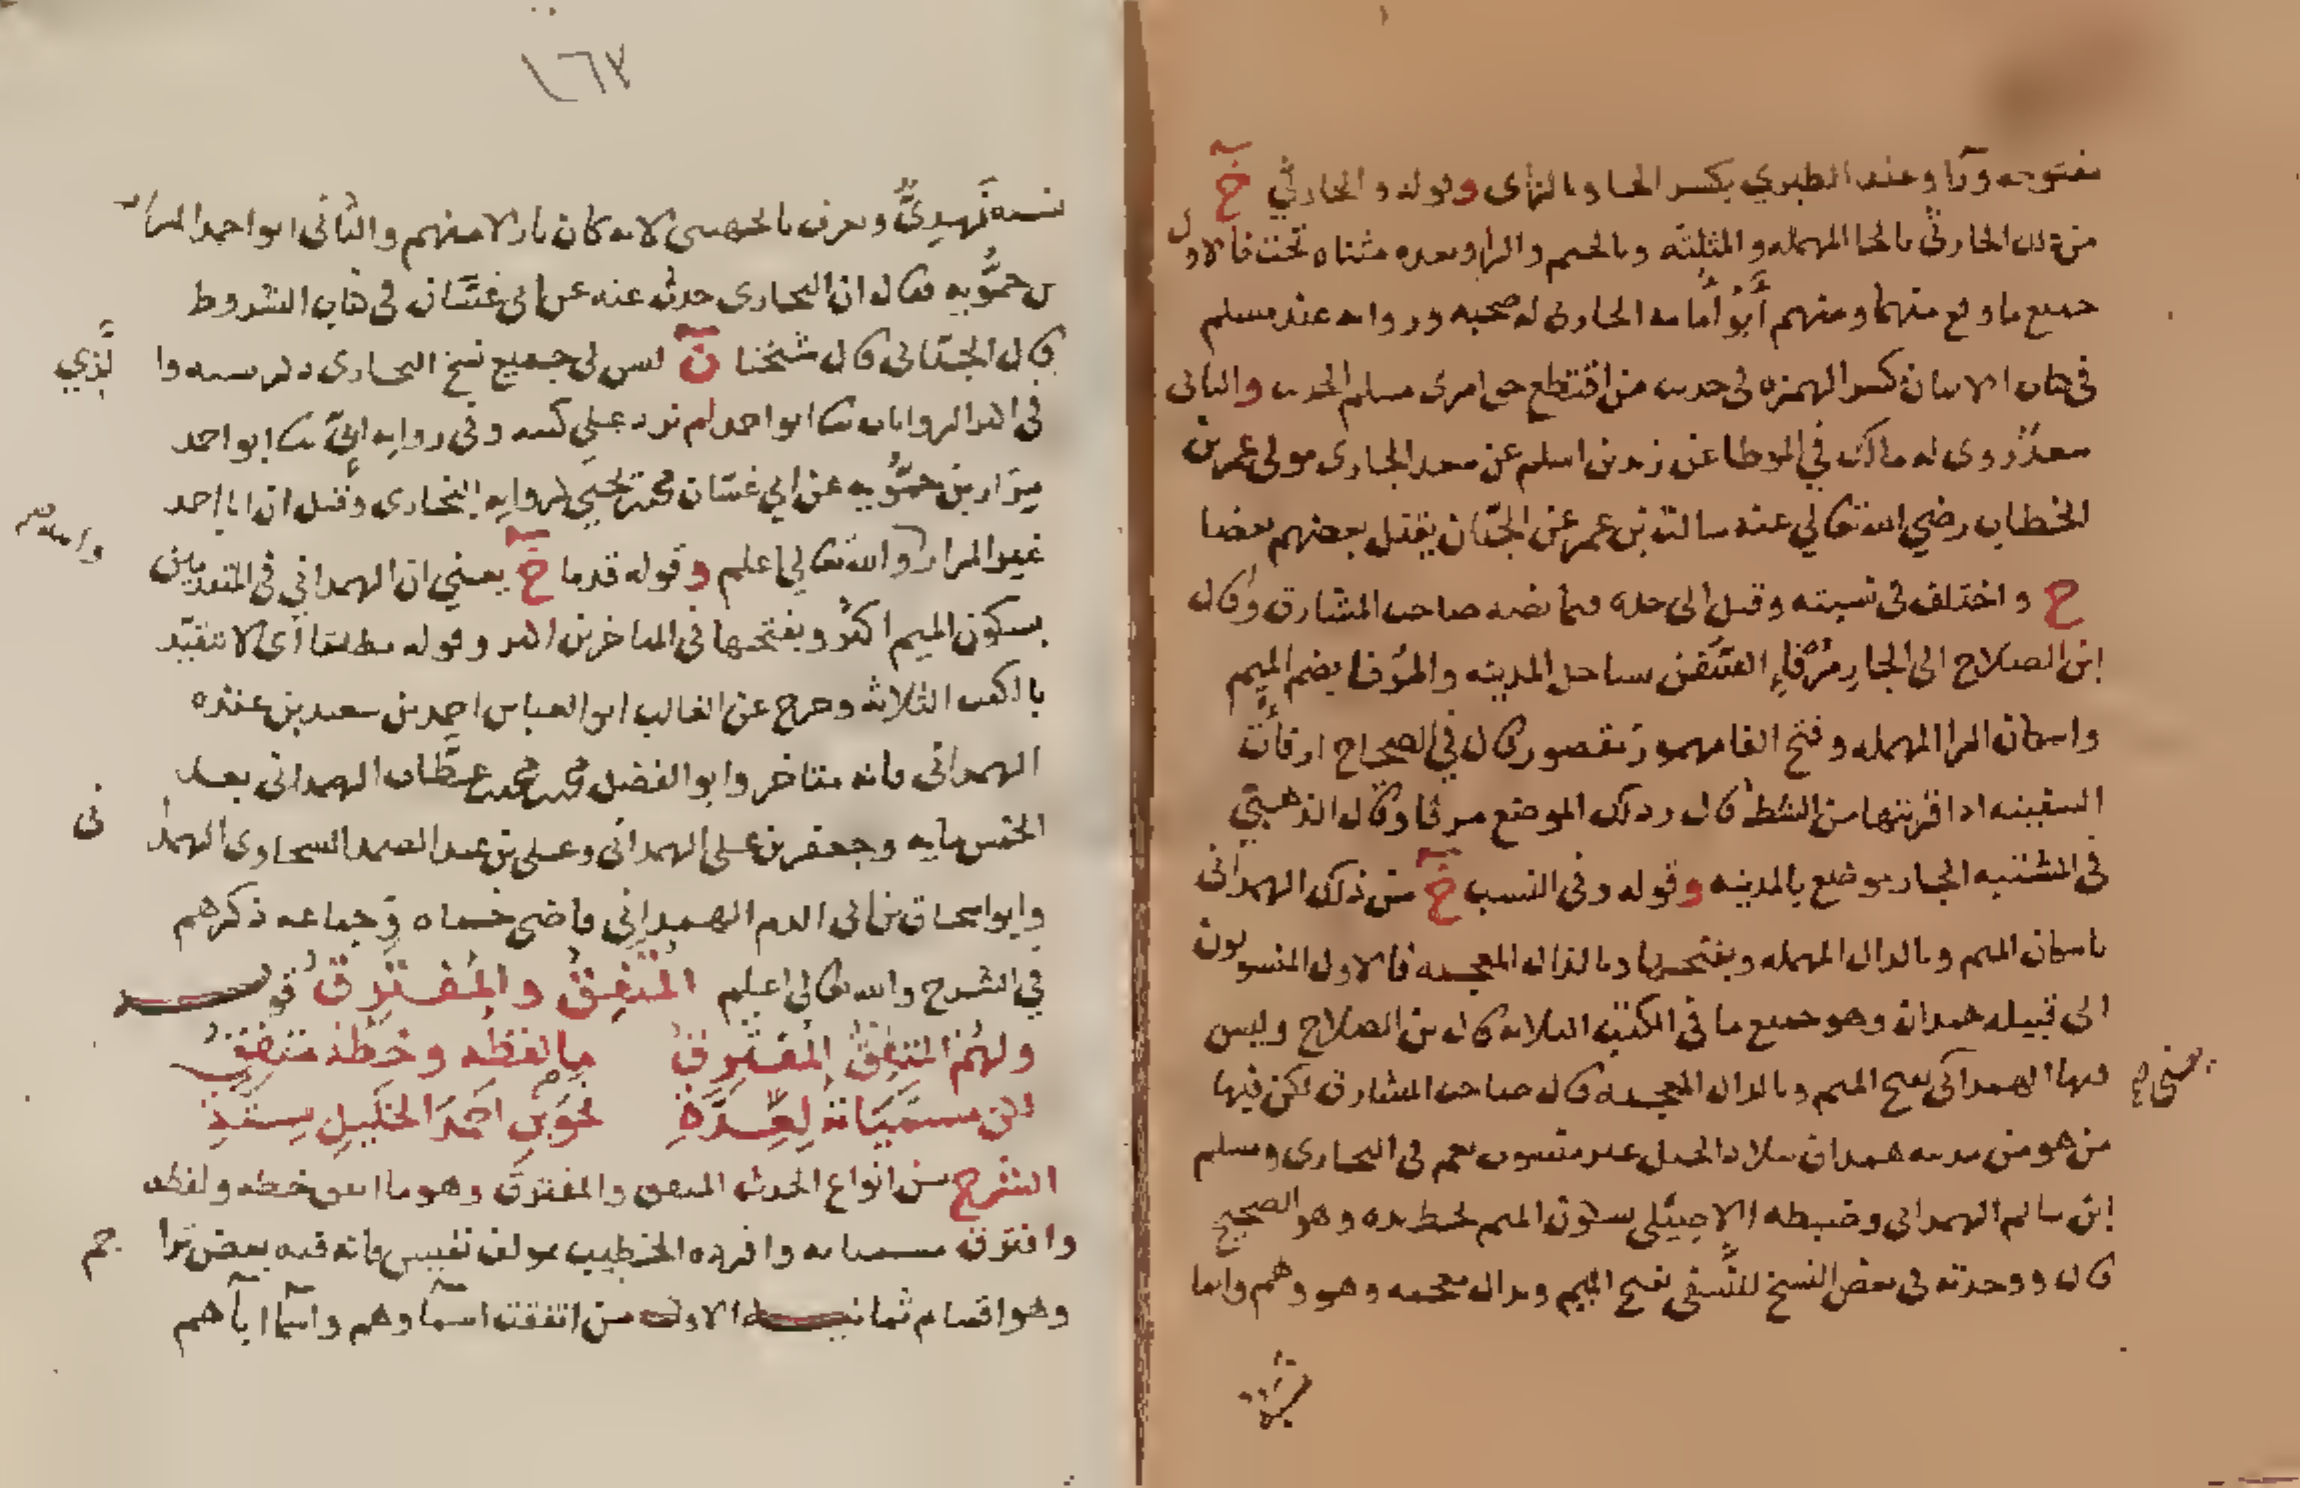 مفتوحه ورا وعند الطبري بكسر الحا وبالزاى وقوله والحارثي خ
من ذلك الحارثي بالحا المهمله والمثلثه وبالجيم والرا وبعده مثناه تحت فالاول
جميع ما وقع منهما ومنهم أبو أمامه الحارثى له صحبه وروايه عند مسلم
فى كتاب الايمان كسر الهمزه فى حديث من اقتطع حق امرئ مسلم الحديث والثانى
سعد روى له مالك في الموطا عن زيد بن اسلم عن سعد الجارى مولى عمر بن
الخطاب رضي الله تعالي عنه سالت بن عمر عن الحيتان يقتل بعضهم بعضا
ح واختلف فى نسبته وقيل الى جده فيما نصه صاحب المشارق وقال
ابن الصلاح الى الجار مرفاء السفن ساحل المدينه والمرفا بضم الميم
واسكان الرا المهمله وفتح الفا مهموز مقصور قال في الصحاح ارفات
السفينه اذا قربتها من الشط قال وذلك الموضع مرفا وقال الذهبي
فى المشتبه الجار موضع بالمدينه وقوله وفى النسب خ من ذلك الهمدانى
باسكان الميم وبالدال المهمله وبفتحها وبالذال المعجمه فالاول المنسوبون
الى قبيله همدان وهو جميع ما فى الكتب الثلاثه قال بن الصلاح وليس
فيها الهمذانى بفتح الميم وبالذال المعجمه قال صاحب المشارق لكن فيها
من هو من مدينه همذان ببلاد الجبل غير منسوب فيهم فى البخارى ومسلم
ابن سالم الهمدانى وضبطه الاصيلى بسكون الميم بخط يده وهو الصحيح
قال ووجدته فى بعض النسخ للنسفي بفتح الميم وبذال معجمه وهو وهم وانما
نسبته
١٦٧
نسبه نهدي ويعرف بالجهنى لانه كان نازلا منهم والثانى ابو احمد المرار
بن حمويه فقال ان البخارى حدث عنه عن ابى غسان فى كتاب الشروط
قال الجيانى قال شيخنا ن ليس فى جميع نسخ البخارى ذكر نسبه والذي
فى اكثر الروايات ثنا ابو احمد لم نزد على كنيته وفى روايه ابى ثنا ابو احمد
مرار بن حمويه عن ابي غسان محمد بن يحيى لروايه البخارى وقيل ان ابا احمد
غير المرار والله تعالي اعلم وقوله قدما خ يعني ان الهمداني فى المتقدمين
بسكون الميم اكثر وبفتحها فى المتاخرين اكثر وقوله مطلقا أى لا تتقيد
بالكتب الثلاثه وخرج عن الغالب ابو العباس احمد بن سعيد بن عقده
الهمدانى فانه متاخر وابو الفضل محمد بن محمد بن عطاف الهمدانى بعد
الخمس مايه وجعفر بن على الهمدانى وعلى بن عبد الصمد السخاوى الهمدانى
وابو اسحاق بن ابى الدم الهمدانى قاضى حماه وجماعه ذكرهم
في الشرح والله تعالى اعلم المتفق والمفترق قوله
ولهم المتفق المفترق ما لفظه وخطه متفق
لكن مسمياته لعدة نحو بن احمد الخليل سته
الشرح من انواع الحديث المتفق والمفترق وهو ما اتفق خطه ولفظه
وافترق مسمياته وافرده الخطيب مولف نفيس فانه فيه بعض تراجم
وهو اقسام ثمانيه الاول من اتفقت اسماوهم واسما آبآهم